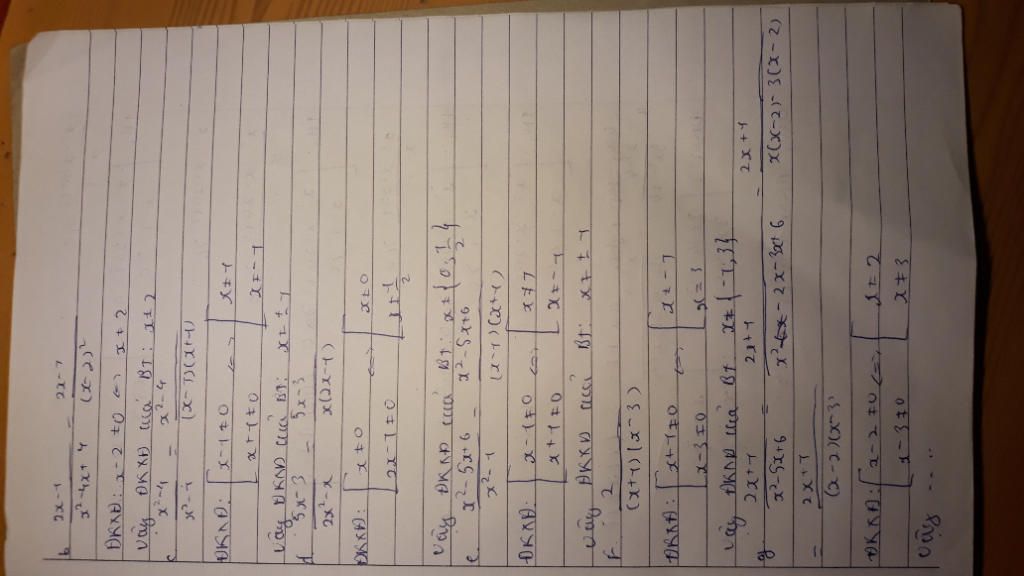 b 2x-1 / x²-4x+4 = 2x-7 / (x-2)²
ĐKXĐ: x-2≠0 <=> x≠2
Vậy ĐKXĐ của BT: x≠2
c x²-4 / x²-1 = x²-4 / (x-1)(x+1)
ĐKXĐ: [ x-1≠0 <=> [ x≠1
x+1≠0 x≠-1
Vậy ĐKXĐ của BT: x≠±1
d 5x-3 / 2x²-x = 5x-3 / x(2x-1)
ĐKXĐ: [ x≠0 <=> [ x≠0
2x-1≠0 x≠1/2
Vậy ĐKXĐ của BT: x≠{0;1/2}
e x²-5x+6 / x²-1 = x²-5x+6 / (x-1)(x+1)
ĐKXĐ: [ x-1≠0 <=> [ x≠1
x+1≠0 x≠-1
Vậy ĐKXĐ của BT: x≠±1
f. 2 / (x+1)(x-3)
ĐKXĐ: [ x+1≠0 <=> [ x≠-1
x-3≠0 x=3
Vậy ĐKXĐ của BT x≠{-1;3}
g. 2x+1 / x²-5x+6 = 2x+1 / x²-2x-3x+6 = 2x+1 / x(x-2)-3(x-2)
= 2x+1 / (x-2)(x-3)
ĐKXĐ: [ x-2≠0 <=> [ x≠2
x-3≠0 x≠3
Vậy ....